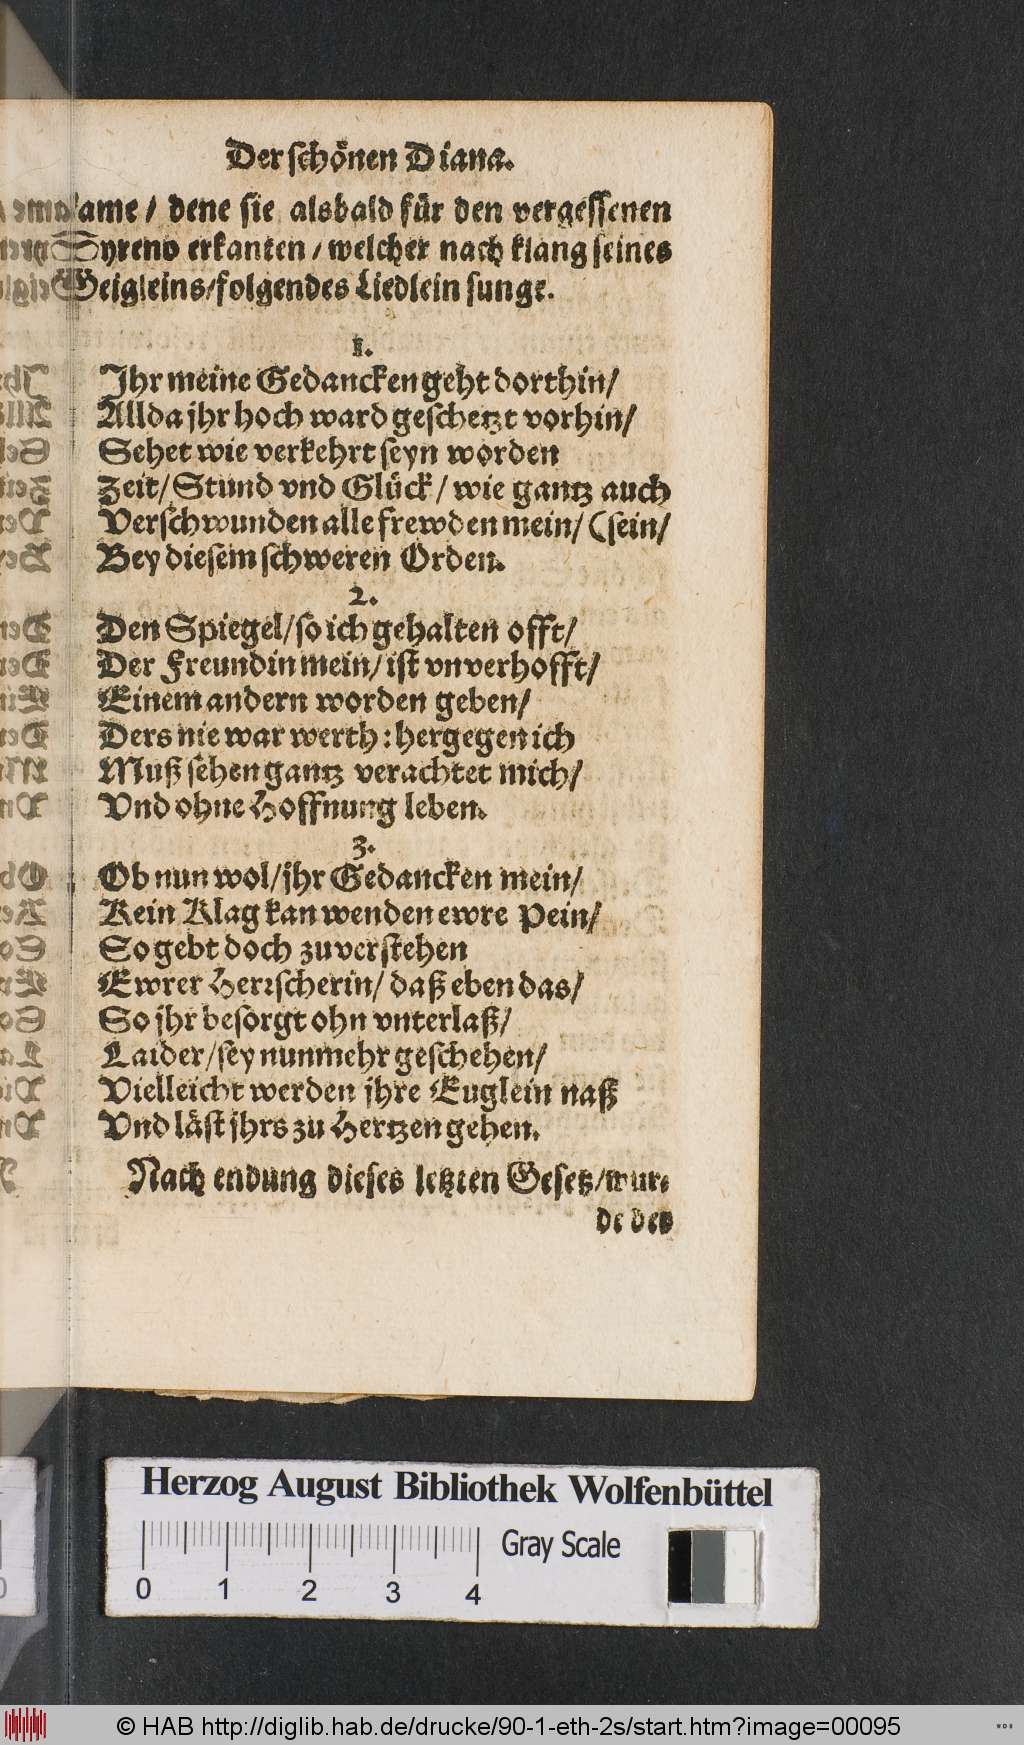 Der schönen Diana.
same / dene sie alsbald für den vergessenen
Syreno erkanten / welcher nach klang seines
Geigleins / folgendes Liedlein sunge.
1.
Ihr meine Gedancken geht dorthin /
Allda jhr hoch ward geschetzt vorhin /
Sehet wie verkehrt seyn worden
Zeit / Stund vnd Glück / wie gantz auch
Verschwunden alle frewden mein / (sein /
Bey diesem schweren Orden.
2.
Den Spiegel / so ich gehalten offt /
Der Freundin mein / ist vnverhofft /
Einem andern worden geben /
Ders nie war werth : hergegen ich
Muß sehen gantz verachtet mich /
Vnd ohne Hoffnung leben.
3.
Ob nun wol / jhr Gedancken mein /
Kein Klag kan wenden ewre Pein /
So gebt doch zuverstehen
Ewrer Herrscherin / daß eben das /
So jhr besorgt ohn vnterlaß /
Laider / sey nunmehr geschehen /
Vielleicht werden jhre Euglein naß
Vnd läst jhrs zu Hertzen gehen.
Nach endung dieses letzten Gesetz / wur-
de des
Herzog August Bibliothek Wolfenbüttel
Gray Scale
0 1 2 3 4
© HAB http://diglib.hab.de/drucke/90-1-eth-2s/start.htm?image=00095